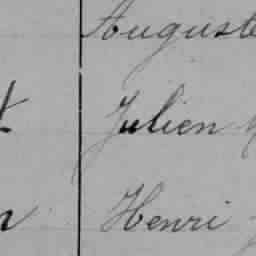 Auguste
Julien
Henri